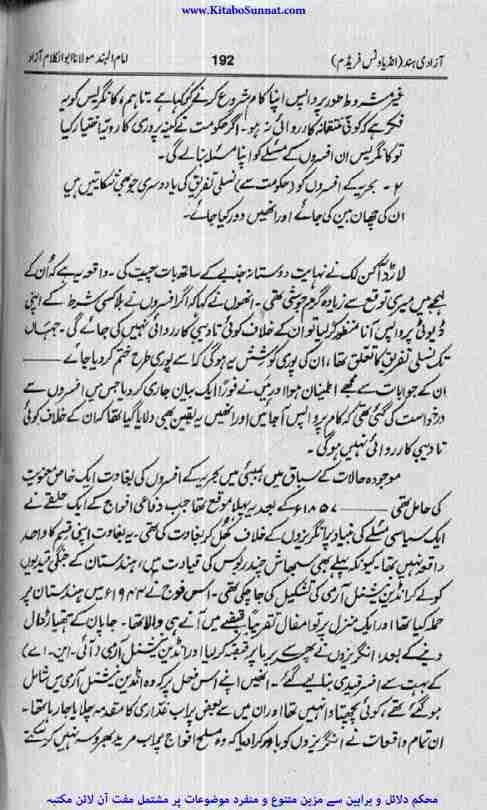 www.KitaboSunnat.com
آزادی ہند (انڈیا ونس فریڈم)
192
امام الہند مولانا ابوالکلام آزاد
غیر مشروط طور پر واپس اپنا کام شروع کرنے کو کہا ہے۔ تاہم، کانگریس کو یہ
فکر ہے کہ کوئی منتقمانہ کارروائی نہ ہو۔ اگر حکومت نے کینہ پروری کا رویّہ اختیار کیا
تو کانگریس ان افسروں کے مسئلے کو اپنا مسئلہ بنا لے گی۔
۲ - بحریہ کے افسروں کو (حکومت سے) نسلی تفریق کی یا دوسری جو بھی شکایتیں ہیں
ان کی چھان بین کی جائے اور انھیں دور کیا جائے۔
لارڈ آکن لک نے نہایت دوستانہ جذبے کے ساتھ بات چیت کی۔ واقعہ یہ ہے کہ اُن کے
لہجے میں میری توقع سے زیادہ گرم جوشی تھی۔ انھوں نے کہا کہ اگر افسروں نے بلا کسی شرط کے اپنی
ڈیوٹی پر واپس آنا منظور کر لیا تو ان کے خلاف کوئی تادیبی کارروائی نہیں کی جائے گی۔ جہاں
تک نسلی تفریق کا تعلق تھا، ان کی پوری کوشش یہ ہوگی کہ اسے پوری طرح ختم کر دیا جائے ———
ان کے جوابات سے مجھے اطمینان ہوا اور میں نے فوراً ایک بیان جاری کر دیا جس میں افسروں سے
درخواست کی گئی تھی کہ کام پر واپس آ جائیں اور انھیں یہ یقین بھی دلایا گیا تھا کہ ان کے خلاف کوئی
تادیبی کارروائی نہیں ہوگی۔
موجودہ حالات کے سیاق میں بمبئی میں بحریہ کے افسروں کی بغاوت ایک خاص معنویت
کی حامل تھی ——— ۱۸۵۷ء کے بعد یہ پہلا موقع تھا جب دفاعی افواج کے ایک حلقے نے
ایک سیاسی مسئلے کی بنیاد پر انگریزوں کے خلاف کھُل کر بغاوت کی تھی۔ یہ بغاوت اپنی قسم کا واحد
واقعہ نہیں تھا۔ کیونکہ پہلے بھی سبھاش چندر بوس کی قیادت میں، ہندستان کے جنگی قیدیوں
کو لے کر انڈین نیشنل آرمی کی تشکیل کی جا چکی تھی۔ اس فوج نے ۱۹۴۴ء میں ہندستان پر
حملہ کیا تھا اور ایک منزل پر تو امفال تقریباً قبضے میں آنے ہی والا تھا۔ جاپان کے ہتھیار ڈال
دینے کے بعد، انگریزوں نے پھر سے برما پر قبضہ کر لیا اور انڈین نیشنل آرمی (آئی۔ این۔ اے)
کے بہت سے افسر قیدی بنا لیے گئے۔ انھیں اپنے اس فعل پر کہ وہ انڈین نیشنل آرمی میں شامل
ہو گئے تھے، کوئی پچھتاوا نہیں تھا اور ان میں سے بعض پر اب غداری کا مقدمہ چلایا جا رہا تھا۔
ان تمام واقعات نے انگریزوں کو باور کرا دیا کہ وہ مسلح افواج پر اب مزید بھروسہ نہیں کر سکتے
محکم دلائل و براہین سے مزین متنوع و منفرد موضوعات پر مشتمل مفت آن لائن مکتبہ